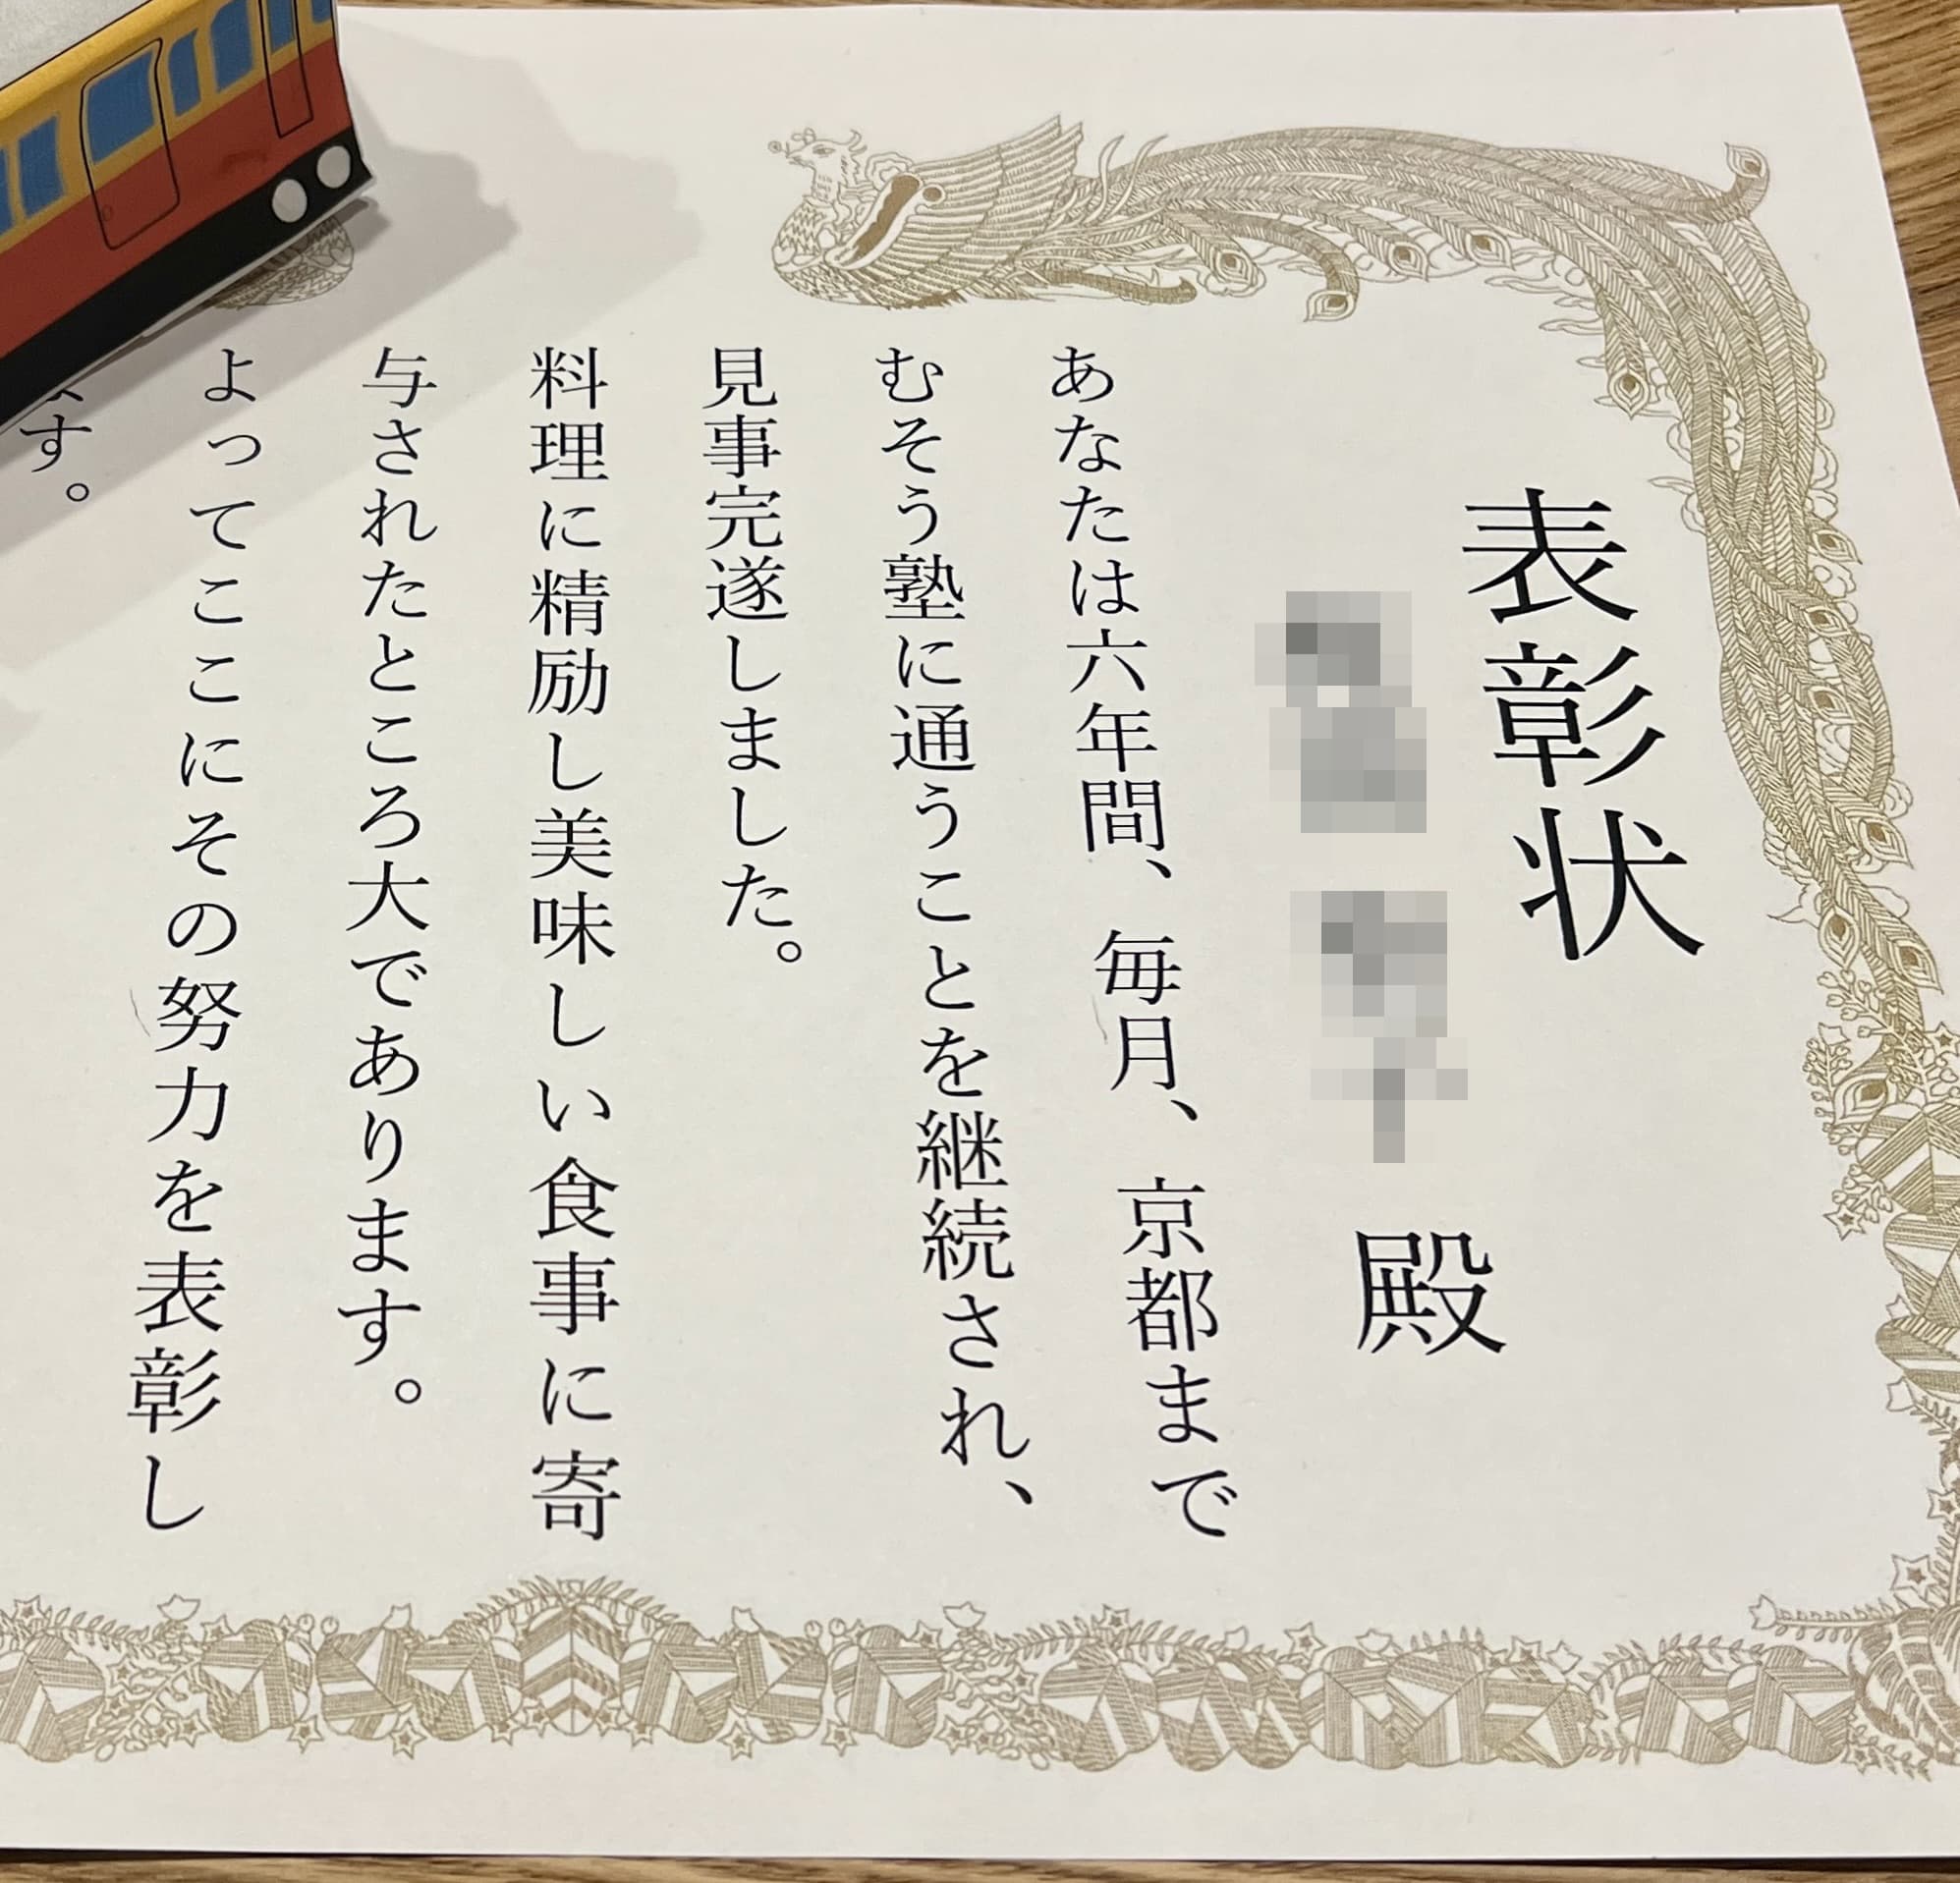 表彰状
殿
あなたは六年間、毎月、京都まで
むそう塾に通うことを継続され、
見事完遂しました。
料理に精励し美味しい食事に寄
与されたところ大であります。
よってここにその努力を表彰し
ます。